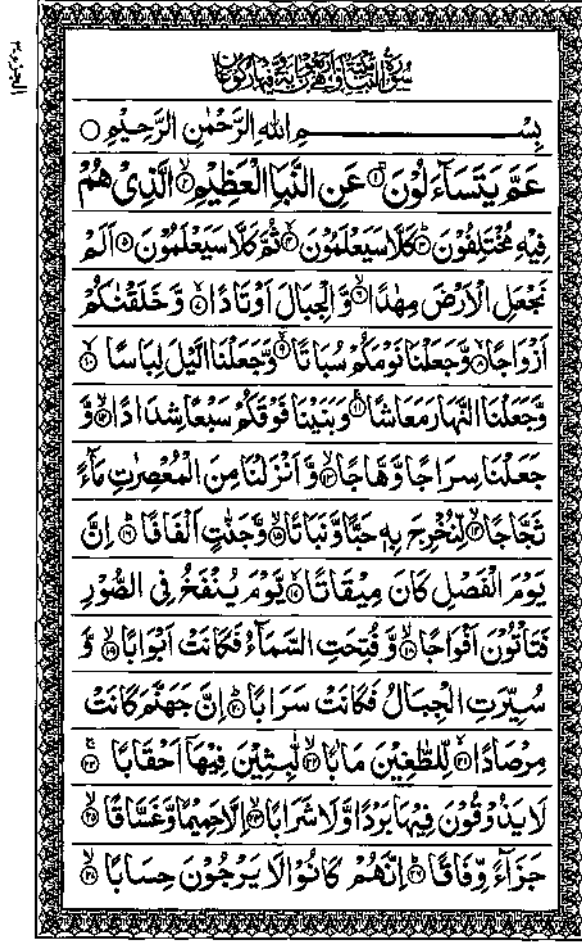 الجزء ٣٠
سُوْرَةُ النَّبَاِ مَكِّيَّةٌ وَّهِيَ اَرْبَعُوْنَ اٰيَةً وَّفِيْهَا رُكُوْعَانِ
بِسْمِ اللّٰهِ الرَّحْمٰنِ الرَّحِيْمِ ○
عَمَّ يَتَسَآءَلُوْنَ ۚ﴿۱﴾ عَنِ النَّبَاِ الْعَظِيْمِ ۙ﴿۲﴾ الَّذِىْ هُمْ
فِيْهِ مُخْتَلِفُوْنَ ؕ﴿۳﴾ كَلَّا سَيَعْلَمُوْنَ ۙ﴿۴﴾ ثُمَّ كَلَّا سَيَعْلَمُوْنَ ﴿۵﴾ اَلَمْ
نَجْعَلِ الْاَرْضَ مِهٰدًا ۙ﴿۶﴾ وَّ الْجِبَالَ اَوْتَادًا ۪ۙ﴿۷﴾ وَّ خَلَقْنٰكُمْ
اَزْوَاجًا ۙ﴿۸﴾ وَّجَعَلْنَا نَوْمَكُمْ سُبَاتًا ۙ﴿۹﴾ وَّجَعَلْنَا الَّيْلَ لِبَاسًا ۙ﴿۱۰﴾
وَّجَعَلْنَا النَّهَارَ مَعَاشًا ۪﴿۱۱﴾ وَبَنَيْنَا فَوْقَكُمْ سَبْعًا شِدَادًا ۙ﴿۱۲﴾ وَّ
جَعَلْنَا سِرَاجًا وَّهَّاجًا ۪ۙ﴿۱۳﴾ وَّ اَنْزَلْنَا مِنَ الْمُعْصِرٰتِ مَآءً
ثَجَّاجًا ۙ﴿۱۴﴾ لِّنُخْرِجَ بِهٖ حَبًّا وَّنَبَاتًا ۙ﴿۱۵﴾ وَّجَنّٰتٍ اَلْفَافًا ؕ﴿۱۶﴾ اِنَّ
يَوْمَ الْفَصْلِ كَانَ مِيْقَاتًا ۙ﴿۱۷﴾ يَّوْمَ يُنْفَخُ فِى الصُّوْرِ
فَتَاْتُوْنَ اَفْوَاجًا ۙ﴿۱۸﴾ وَّ فُتِحَتِ السَّمَآءُ فَكَانَتْ اَبْوَابًا ۙ﴿۱۹﴾ وَّ
سُيِّرَتِ الْجِبَالُ فَكَانَتْ سَرَابًا ؕ﴿۲۰﴾ اِنَّ جَهَنَّمَ كَانَتْ
مِرْصَادًا ۪ۙ﴿۲۱﴾ لِّلطّٰغِيْنَ مَاٰبًا ۙ﴿۲۲﴾ لّٰبِثِيْنَ فِيْهَاۤ اَحْقَابًا ۚ﴿۲۳﴾
لَا يَذُوْقُوْنَ فِيْهَا بَرْدًا وَّلَا شَرَابًا ۙ﴿۲۴﴾ اِلَّا حَمِيْمًا وَّغَسَّاقًا ۙ﴿۲۵﴾
جَزَآءً وِّفَاقًا ؕ﴿۲۶﴾ اِنَّهُمْ كَانُوْا لَا يَرْجُوْنَ حِسَابًا ۙ﴿۲۷﴾